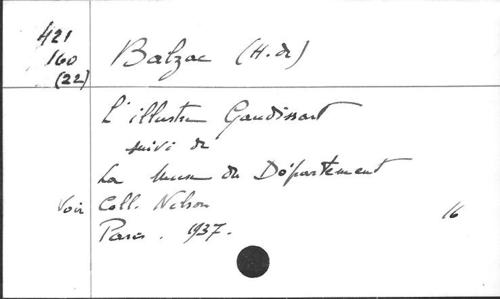 421
160
(22)
Balzac (H. de)
L'illustre Gaudissart
suivi de
La Muse du Département
Voir Coll. Nelson
Paris. 1937.
16